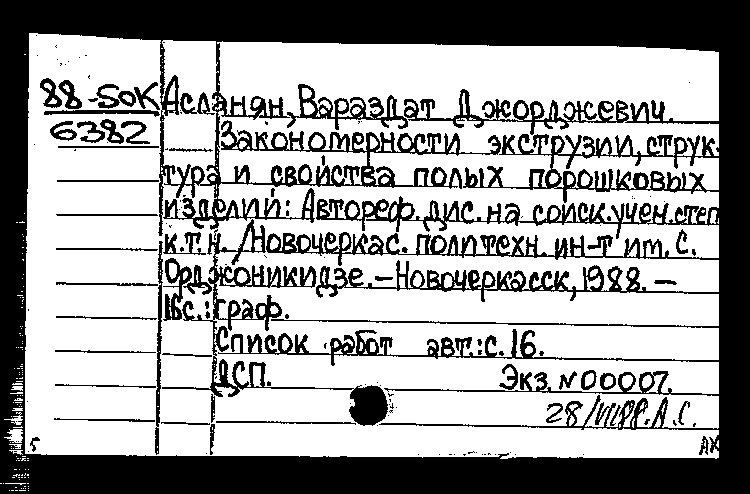 88-5ок Асланян, Вараздат Джорджевич.
6382 Закономерности экструзии, струк-
тура и свойства полых порошковых
изделий: Автореф. дис. на соиск. учен. степ
к.т.н. /Новочеркас. политехн. ин-т им. С.
Орджоникидзе.—Новочеркасск, 1988.—
16с.: граф.
Список работ авт.: с. 16.
ДСП. Экз. N00007.
28/VII88. А.С.
5 АК